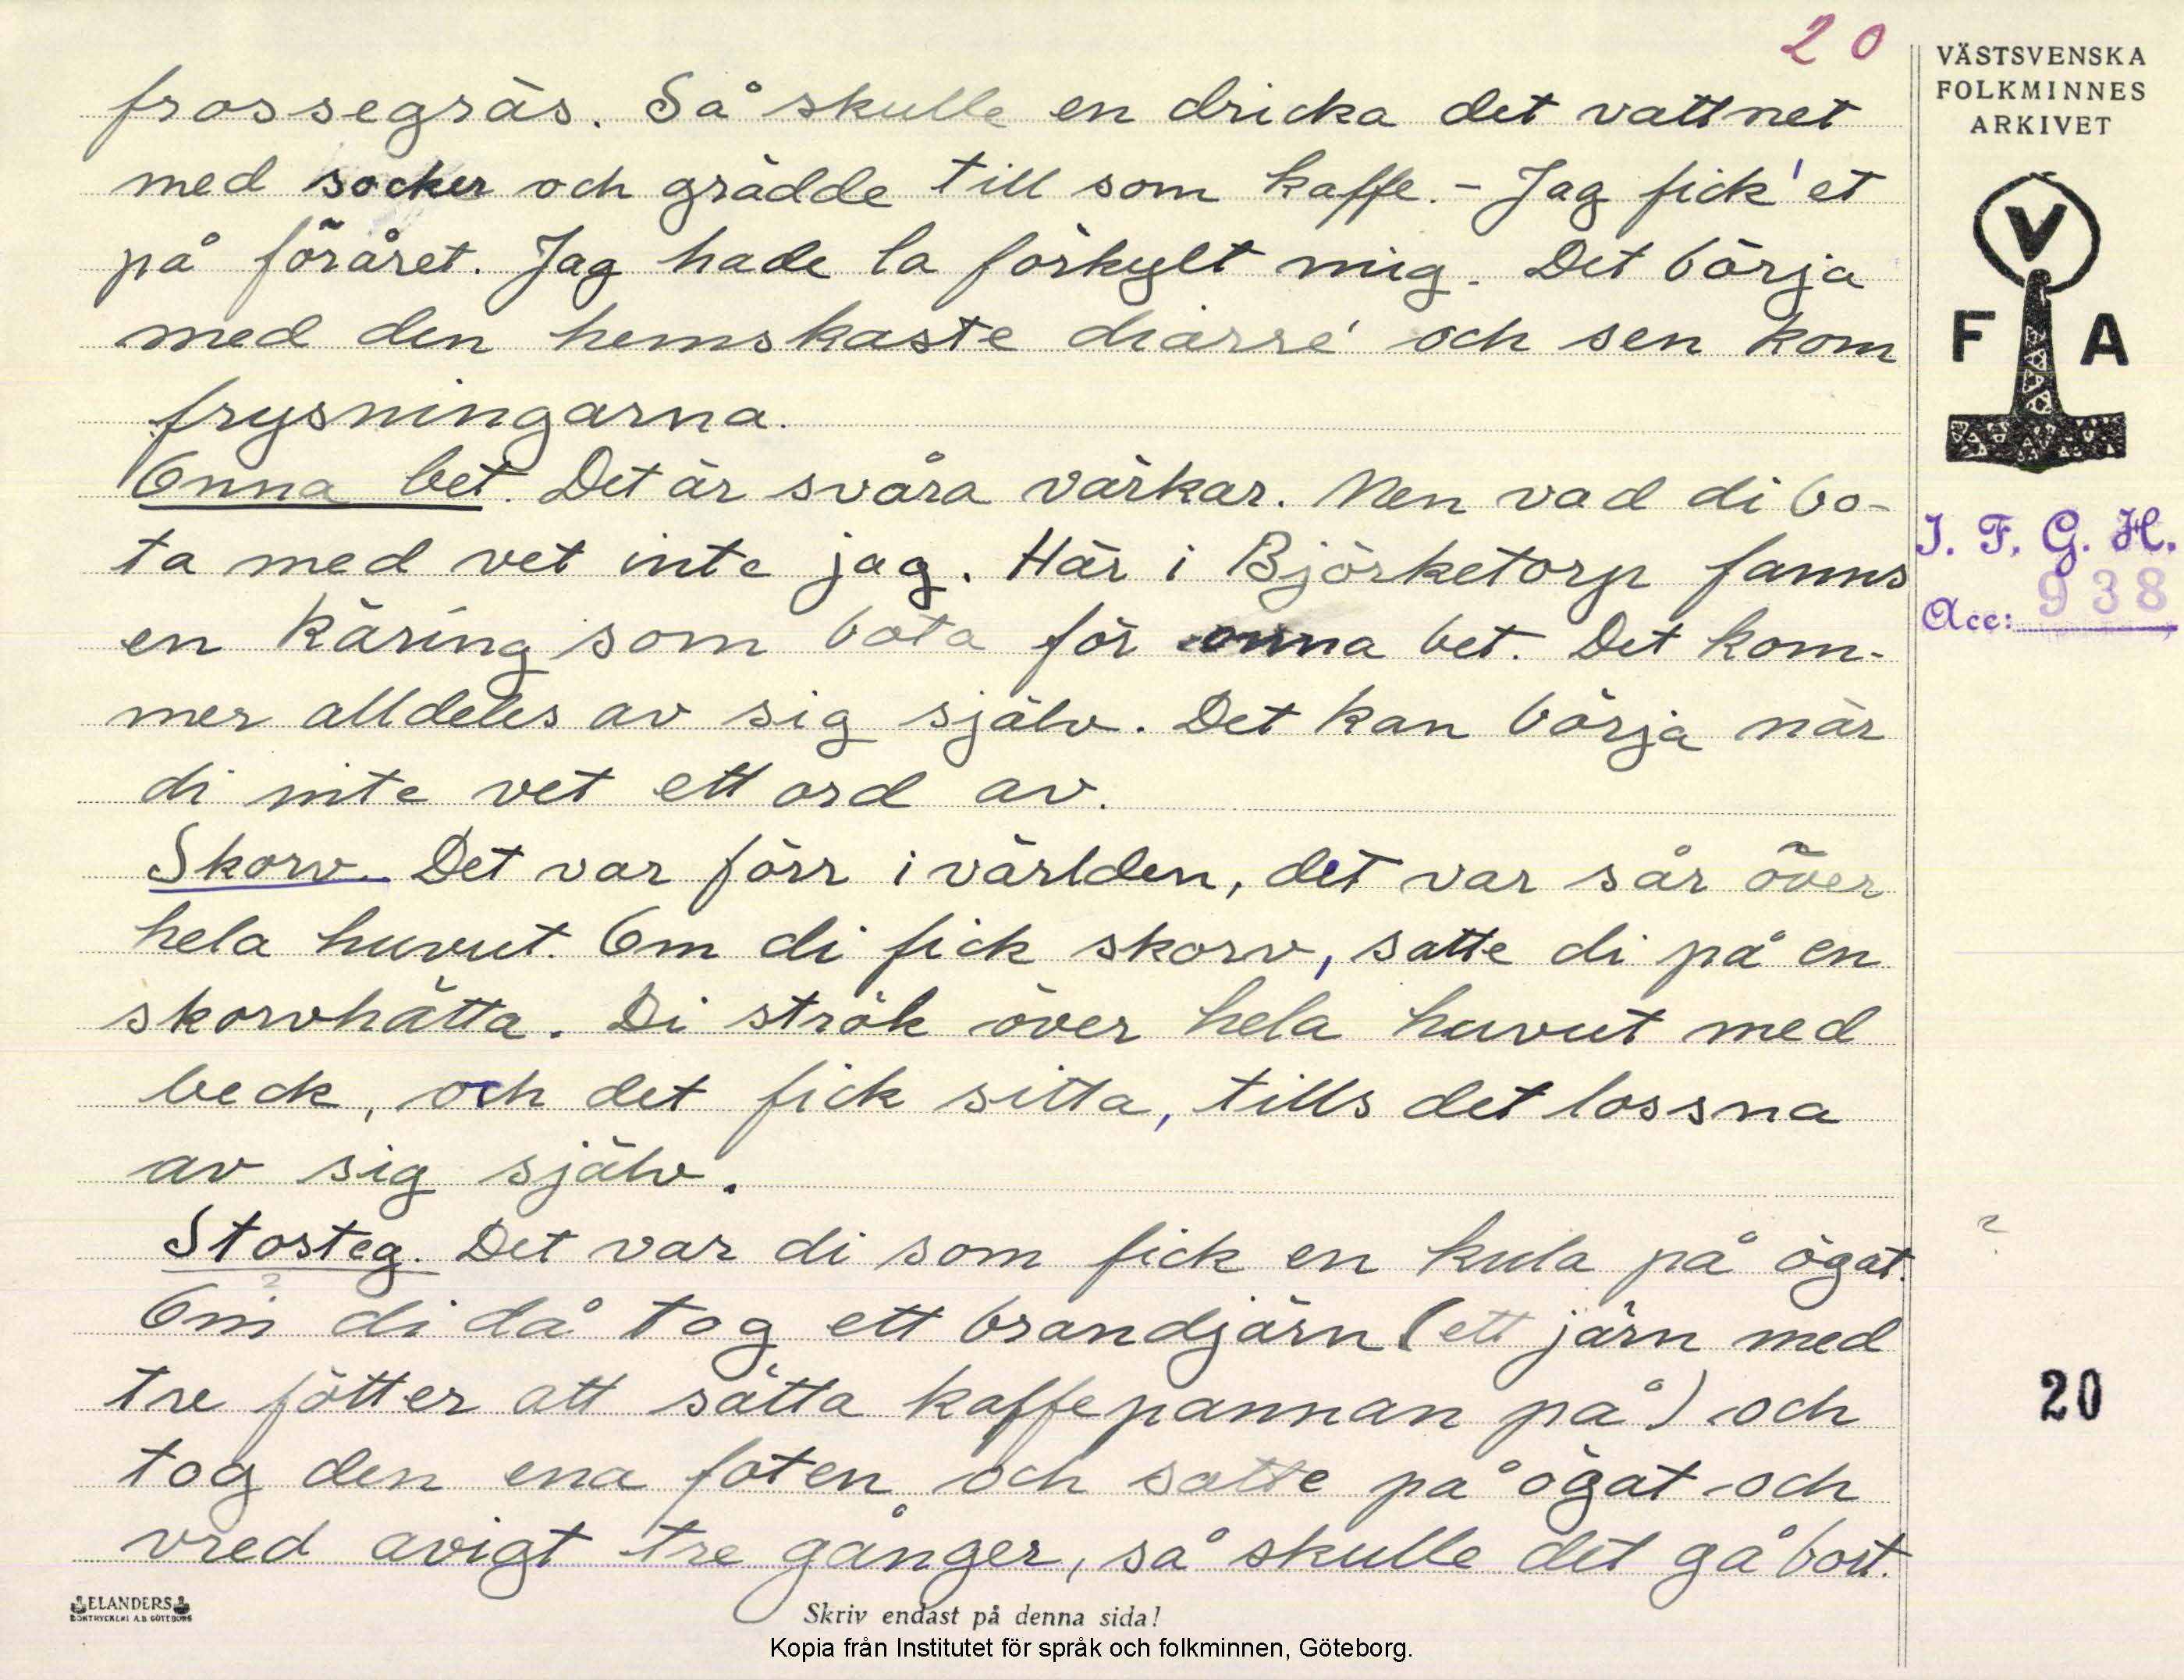 20
VÄSTSVENSKA
FOLKMINNES
ARKIVET
frossegräs. Så skulle en dricka det vattnet
med socker och grädde till som kaffe. - Jag fick 'et
på föråret. Jag hade la förkylt mig. Det börja
med den hemskaste diarré och sen kom
frysningarna.
Onna bet. Det är svåra värkar. Men vad di bo-
ta med vet inte jag. Här i Björketorp fanns
en käring som bota för onna bet. Det kom-
mer alldeles av sig själv. Det kan börja när
di inte vet ett ord av.
Skorv. Det var förr i världen, det var sår över
hela huvut. Om di fick skorv, satte di på en
skorvhätta. Di strök över hela huvut med
beck, och det fick sitta, tills det lossna
av sig själv.
Stosteg. Det var di som fick en kula på ögat.
Om di då tog ett brandjärn (ett järn med
tre fötter att sätta kaffepannan på) och
tog den ena foten och satte på ögat och
vred avigt tre gånger, så skulle det gå bort.
V
F A
I. F. G. H.
Acc: 938
?
20
ELANDERS
BOKTRYCKERI A.B. GÖTEBORG
Skriv endast på denna sida!
Kopia från Institutet för språk och folkminnen, Göteborg.